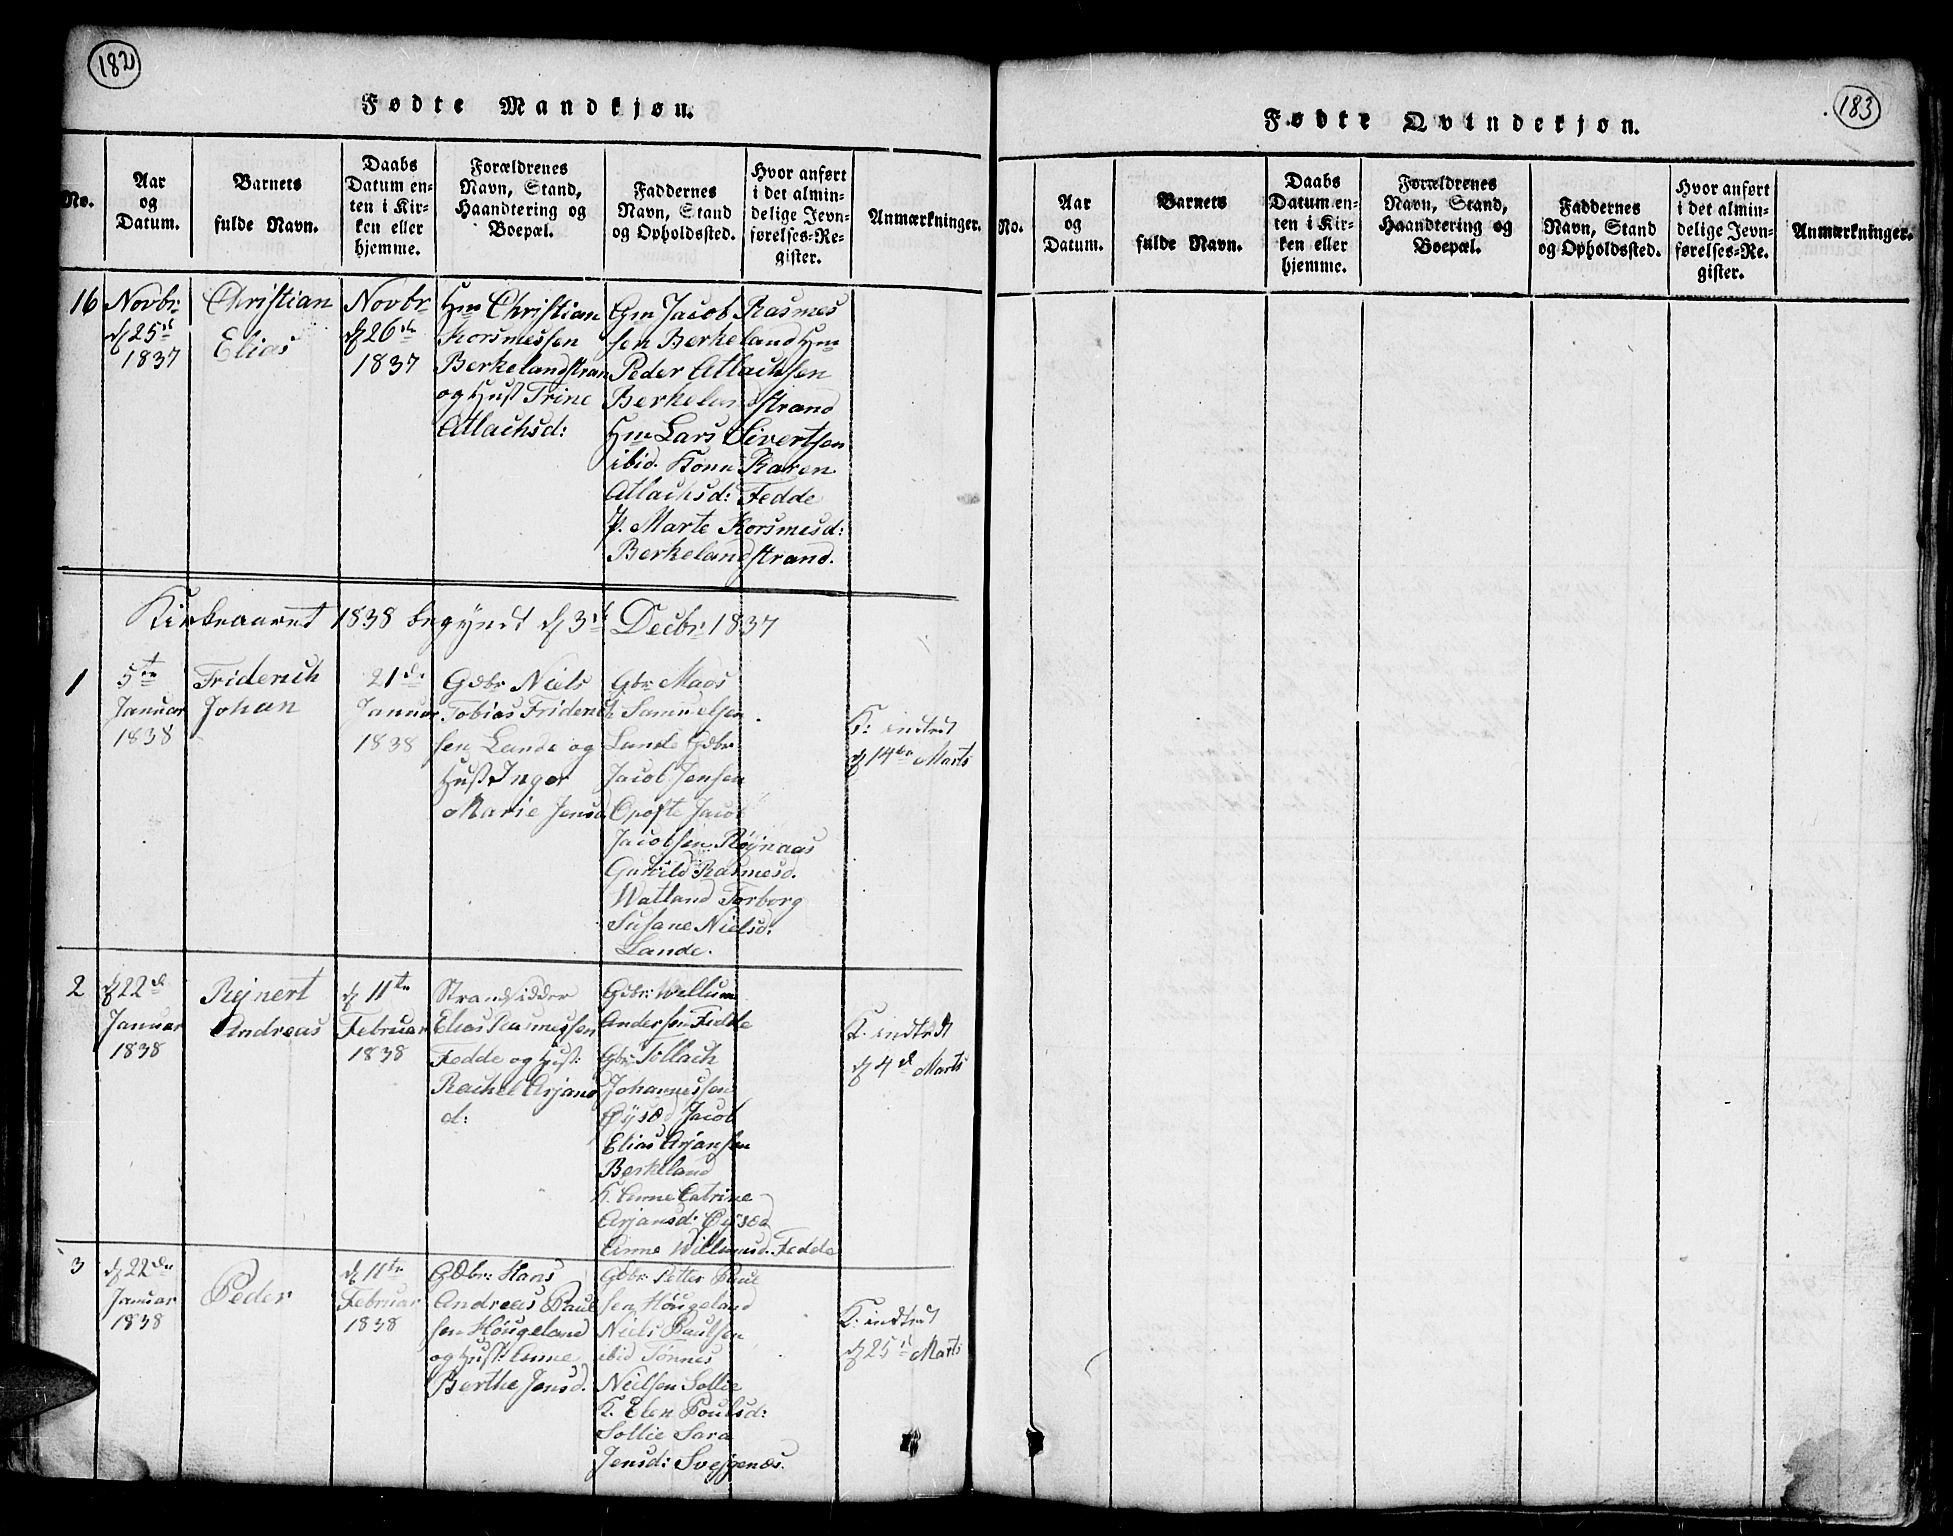 182
Fødte Mandkjøn.
No.
Aar
og
Datum.
Barnets
fulde Navn.
Daabs
Datum en-
ten i Kir-
ken eller
hjemme.
Forældrenes
Navn, Stand,
Haandtering og
Boepæl.
Faddernes
Navn, Stand
og Opholdssted.
Hvor anført
i det almin-
delige Jevn-
førelses-Re-
gister.
Anmærkninger.
16
Novbr:
d 25d
1837
Christian
Elias
Novbr
d 26de
1837
Hm Christian
Korsmessen
Berkelandstran
og Hust Trine
Atlachsd:
Gm Jacob Rasmes
sen Berkeland Hm
Peder Atlachsen
Berkelandstrand
Hm Lars Sivertsen
ibid. Kone Karen
Atlachsd: Fedde
P. Marte Korsmesd:
Berkelandstrand.
Kirkeaaret 1838 begyndt d 3d Decbr: 1837
1
5te
Januar
1838
Friderich
Johan
21de
Januar
1838
Gdbr Niels
Tobias Friderich
sen Lande og
Hust Inger
Marie Jensd
Gbr Mads
Samuelsen
Lande Gdbr
Jacob Jensen
Opofte Jacob
Jacobsen Røjnaas
Gunild Rasmesd.
Watland Torborg
Susane Nielsd:
Lande.
K: indtret
d 14de Marts
2
d 22de
Januar
1838
Rejnert
Andreas
d 11te
Februar
1838
Strandsidder
Elias Rasmessen
Fedde og Hust:
Rachel Arjans
d:
Gdbr: Wellum
Andersen Fedde
Gbr Tollach
Johannessen
Øysæd Jacob
Elias Arjansen
Berkeland
K. Anne Catrine
Arjansd: Øysæd
Anne Willumsd. Fedde
K. indtrdt
d 4d Marts
3
d 22de
Januar
1838
Peder
d 11te
Februar
1838
Gdbr: Hans
Andreas Paul
sen Høugeland
og Hust: Anne
Berthe Jensd.
Gdbr: Petter Paul
sen Høugeland
Niels Paulsen
ibid Tønnes
Neilsen Sollie
K. Elen Poulsd:
Sollie Sara
Jensd: Svejgenæs.
K: indtret
d 25d Marts
183
Fødte Qvindekjøn.
No.
Aar
og
Datum.
Barnets
fulde Navn.
Daabs
Datum en-
ten i Kir-
ken eller
hjemme.
Forældrenes
Navn, Stand,
Haandtering og
Boepæl.
Faddernes
Navn, Stand
og Opholdssted.
Hvor anført
i det almin-
delige Jevn-
førelses-Re-
gister.
Anmærkninger.